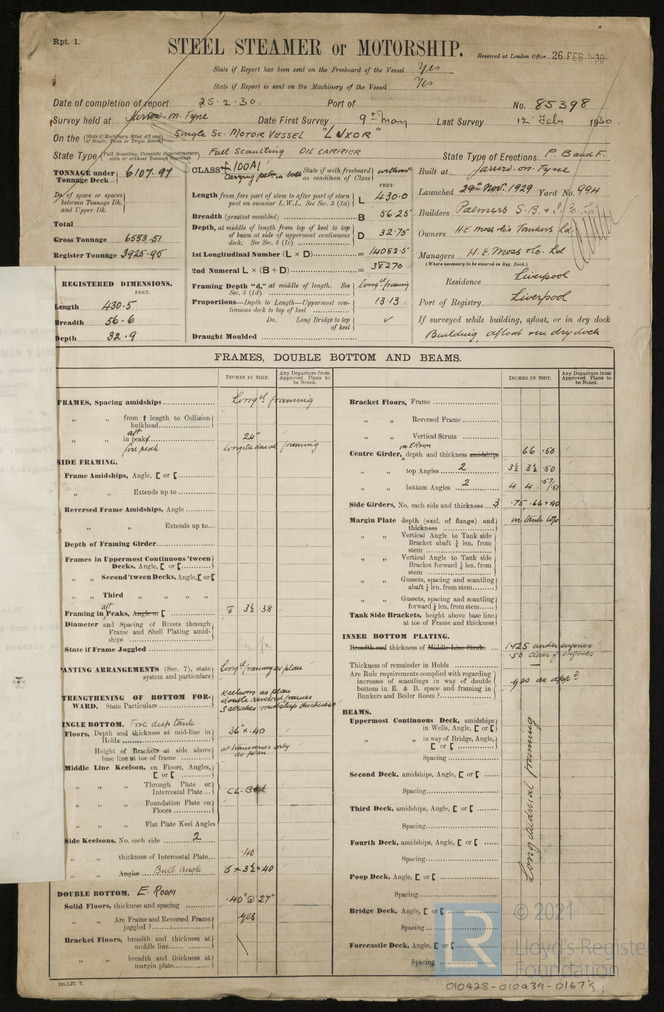 Rpt. 1.
STEEL STEAMER or MOTORSHIP.
Received at London Office 26 FEB 1930
State if Report has been sent on the Freeboard of the Vessel Yes
State if Report is sent on the Machinery of the Vessel Yes
Date of completion of report 25.2.30. Port of No. 85398
Survey held at Jarrow-on-Tyne Date First Survey 9th May Last Survey 12 Feby 1930.
On the Single Sc. MOTOR VESSEL "LUXOR"
State Type Full Scantling OIL CARRIER State Type of Erections P. B and F.
TONNAGE under Tonnage Deck 6107.97
Total
Gross Tonnage 6553.51
Register Tonnage 3925.90
REGISTERED DIMENSIONS.
FEET.
Length 430.5
Breadth 56.6
Depth 32.9
CLASS +100A1 State if with freeboard as condition of Class without
Carrying petm in bulk
FEET.
Length from fore part of stem to after part of stern post on summer L.W.L. See Sec. 3 (1a) L 430.0
Breadth (greatest moulded) B 56.25
Depth, at middle of length from top of keel to top of beam at side of uppermost continuous deck. See Sec. 3 (1c) D 32.75
1st Longitudinal Number (L × D) = 14082.5
2nd Numeral L × (B + D) = 38270
Framing Depth "d," at middle of length. See Sec. 3 (1d) longl framing
Proportions—Depth to Length—Uppermost continuous deck to top of keel 13.13
Do. Long Bridge to top of keel
Draught Moulded
Built at Jarrow-on-Tyne
Launched 29th Nov. 1929 Yard No. 994
Builders Palmers S.B. & I. Co. Ld
Owners H.E. Moss & Co's Tankers Ld
Managers H.E. Moss & Co. Ld
(Where necessary to be entered in Reg. Book.)
Residence Liverpool
Port of Registry Liverpool
If surveyed while building, afloat, or in dry dock
Building, afloat & in dry dock
FRAMES, DOUBLE BOTTOM AND BEAMS.
INCHES IN SHIP.
Any Departure from Approved Plans to be Noted.
FRAMES, Spacing amidships Longl framing
" " from ⅕ length to Collision bulkhead
" " in aft peak 24"
fore peak longitudinal framing
SIDE FRAMING.
Frame Amidships, Angle, [ or [
" " Extends up to
Reversed Frame Amidships, Angle
" " Extends up to
Depth of Framing Girder
Frames in Uppermost Continuous 'tween Decks, Angle, [ or [
" " Second 'tween Decks, Angle, [ or [
" " Third " " " "
Framing in aft Peaks, Angle or [ 7 3½ .38
Diameter and Spacing of Rivets through Frame and Shell Plating amidships
State if Frame Joggled
PANTING ARRANGEMENTS (Sec. 7), state system and particulars longl framing as plan
STRENGTHENING OF BOTTOM FORWARD. State Particulars
SINGLE BOTTOM. Fore deep tank
Floors, Depth and thickness at mid-line in Holds 36 × .40
Height of Brackets at side above base line at toe of frame at transverses only as plan
Middle Line Keelson, on Floors, Angles, [ or [
" " Through Plate or Intercostal Plate
" " Foundation Plate on Floors
" " Flat Plate Keel Angles
Side Keelsons, No. each side 2
" " thickness of Intercostal Plate .40
" " Angles Bulb angle 8 × 3½ × 40
DOUBLE BOTTOM. E. Room
Solid Floors, thickness and spacing .40" @ 27"
" " Are Frame and Reversed Frame joggled ? Yes
Bracket Floors, breadth and thickness at middle line
" " breadth and thickness at margin plate
Bracket Floors, Frame
" " Reversed Frame
" " Vertical Struts
Centre Girder, in E Room depth and thickness amidships 66 .50
" " top Angles 2 3½ 3½ .50
" " bottom Angles 2 4 4
Side Girders, No. each side and thickness 3 .75 .66 & 40
Margin Plate depth (excl. of flange) and thickness no tank tops
" " Vertical Angle to Tank side Bracket abaft ¼ len. from stem
" " Vertical Angle to Tank side Bracket forward ¼ len. from stem
" " Gussets, spacing and scantling abaft ¼ len. from stem
" " Gussets, spacing and scantling forward ¼ len. from stem
Tank Side Brackets, height above base line at toe of Frame and thickness
INNER BOTTOM PLATING.
Breadth and thickness of Middle Line Strake 1.425 under engines
.50 clear of engines
Thickness of remainder in Holds
Are Rule requirements complied with regarding increases of scantlings in way of double bottom in E. & B. space and framing in Bunkers and Boiler Room ? yes as appd
BEAMS.
Uppermost Continuous Deck, amidships in Wells, Angle, [ or [
" " in way of Bridge, Angle, [ or [
Spacing
Second Deck, amidships, Angle, [ or [
Spacing
Third Deck, amidships, Angle, [ or [
Spacing
Fourth Deck, amidships, Angle, [ or [
Spacing
Poop Deck, Angle, [ or [
Spacing
Bridge Deck, Angle, [ or [
Spacing
Forecastle Deck, Angle, [ or [
Spacing
Longitudinal framing
© 2021
LR
Lloyd's Register
Foundation
010428-010439-0167